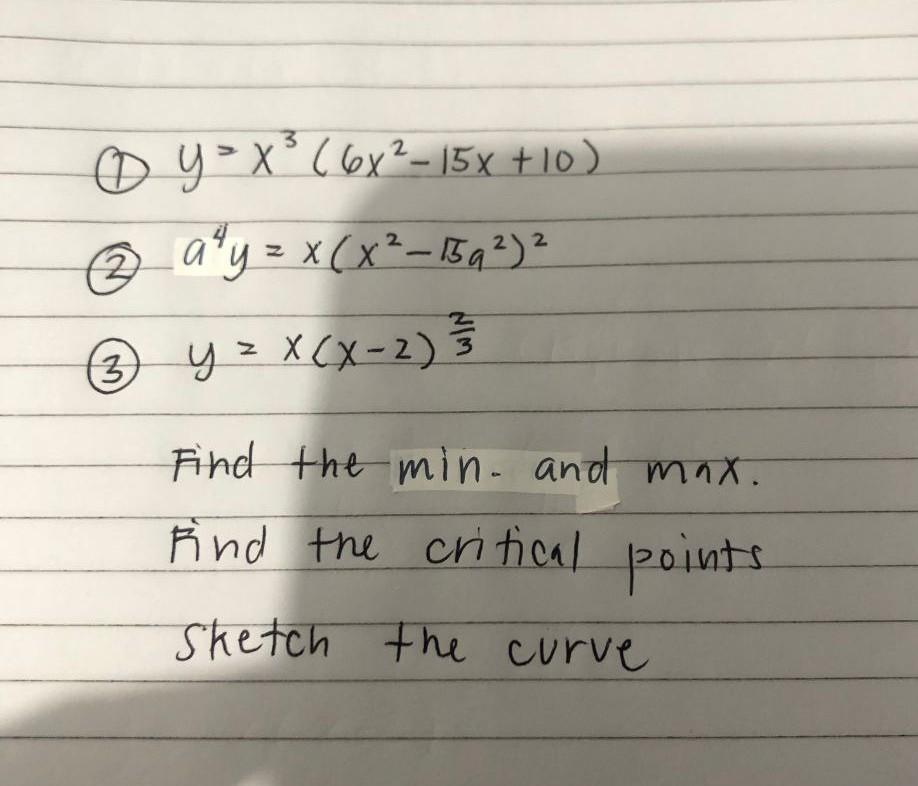 ① y = x³ (6x² - 15x + 10)
② a⁴y = x (x² - 15a²)²
③ y = x (x - 2)^(2/3)
Find the min. and max.
Find the critical points
Sketch the curve